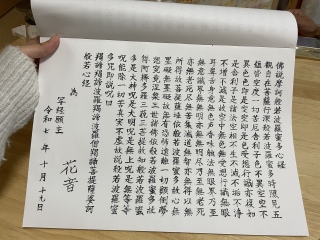 佛説摩訶般若波羅蜜多心経
観自在菩薩行深般若波羅蜜多時照見五
蘊皆空度一切苦厄舎利子色不異空空不
異色色即是空空即是色受想行識亦復如
是舎利子是諸法空相不生不滅不垢不浄
不増不減是故空中無色無受想行識無眼
耳鼻舌身意無色声香味触法無眼界乃至
無意識界無無明亦無無明尽乃至無老死
亦無老死尽無苦集滅道無智亦無得以無
所得故菩提薩埵依般若波羅蜜多故心無
罣礙無罣礙故無有恐怖遠離一切顛倒夢
想究竟涅槃三世諸佛依般若波羅蜜多故
得阿耨多羅三藐三菩提故知般若波羅蜜
多是大神呪是大明呪是無上呪是無等等
呪能除一切苦真実不虚故説般若波羅蜜
多呪即説呪曰
羯諦羯諦波羅羯諦波羅僧羯諦菩提薩婆訶
般若心経
為
写経願主 花音
令和七年十月十九日